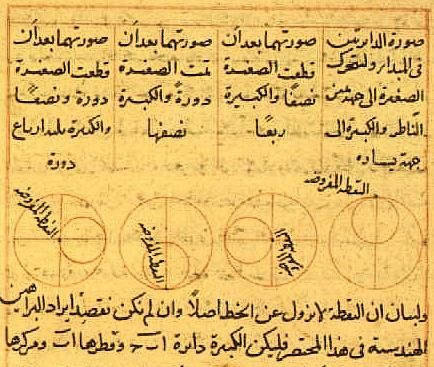 صورة الدايرتين
فى المبدا ولنتحرك
الصغيرة الى جهة يمين
الناظر والكبيرة الى
جهة يساره
صورتهما بعد ان
قطعت الصغيرة
نصفًا والكبيرة
ربعًا
صورتهما بعد ان
تمت الصغيرة
دورةً والكبيرة
نصفها
صورتهما بعد ان
قطعت الصغيرة
دورة ونصفًا
والكبيرة ثلثة ارباع
دورة
النقطة المفروضة
النقطة المفروضة
النقطة المفروضة
النقطة المفروضة
ولبيان ان النقطة لا تزول عن الخط اصلًا وان لم نكن نقصد ايراد البراهين
الهندسية فى هذا المختصر فليكن الكبيرة دائرة اب وقطرها اب ومركزها